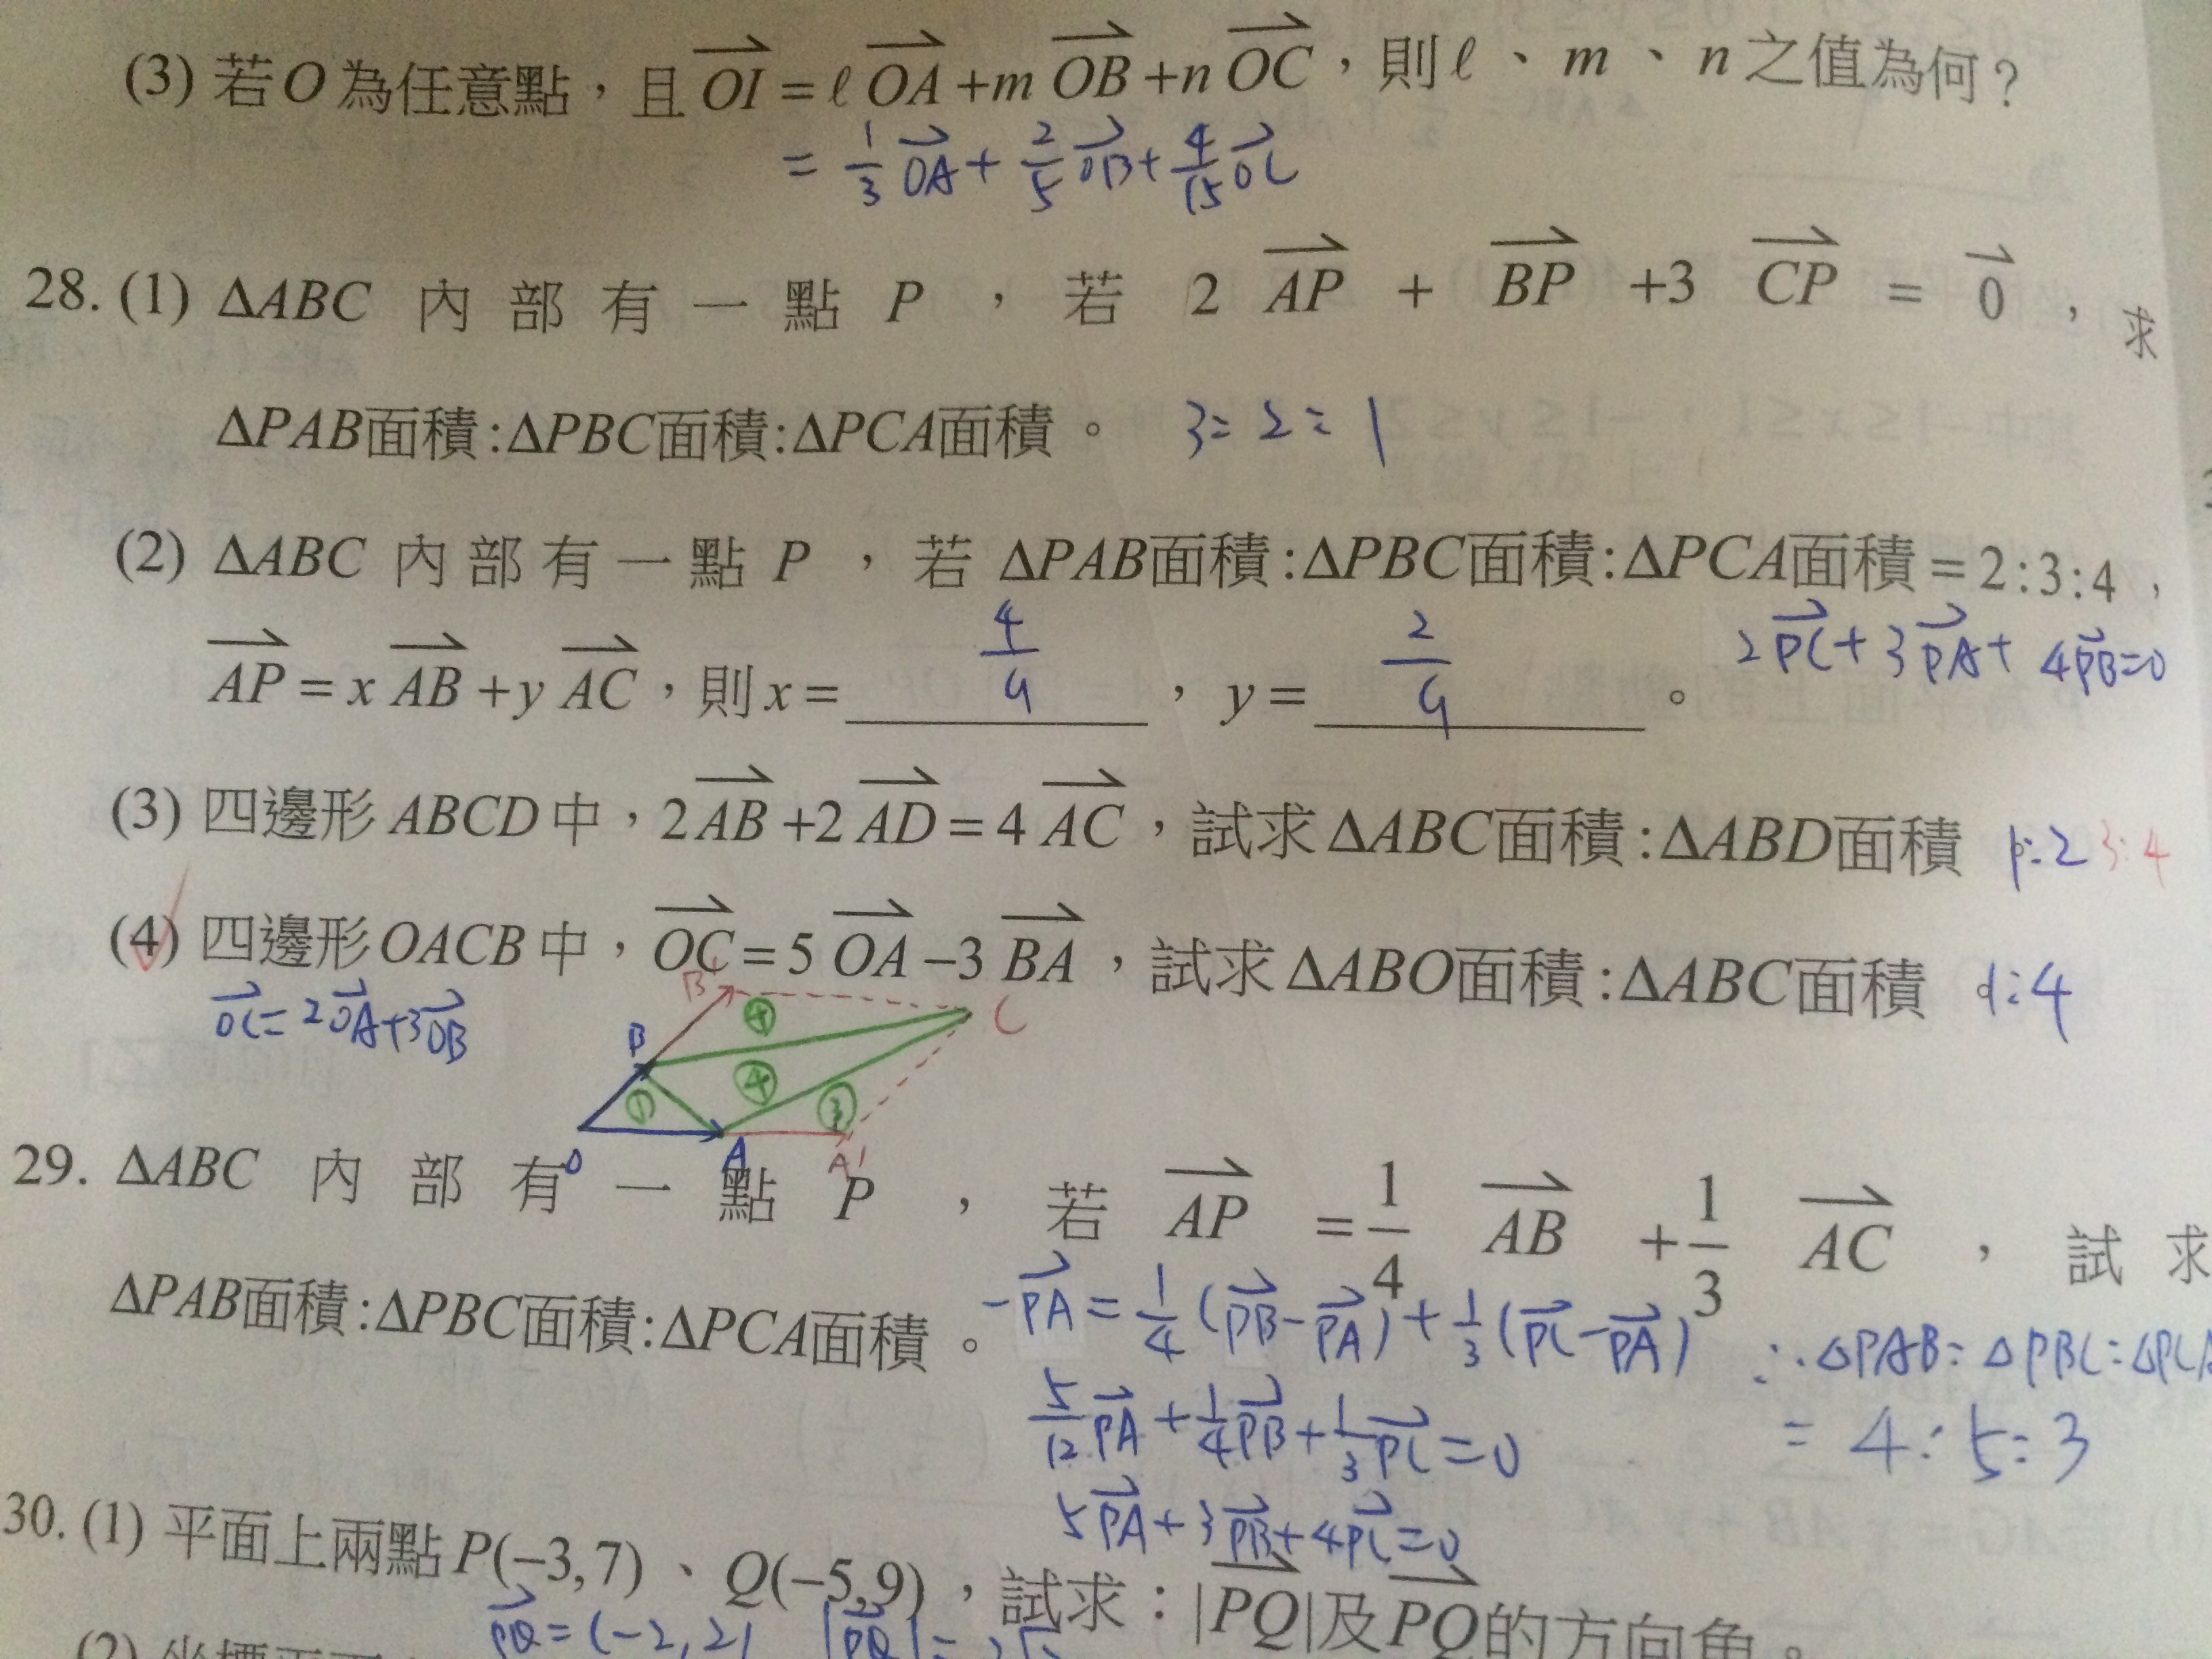 (3) 若O為任意點，且OI = ℓOA+mOB+nOC，則ℓ、m、n之值為何？
= 1/3 OA + 2/5 OB + 4/15 OC
28. (1) ΔABC 內部有一點 P ，若 2 AP + BP +3 CP = 0 ，求
ΔPAB面積:ΔPBC面積:ΔPCA面積。 3:2:1
(2) ΔABC 內部有一點 P ，若 ΔPAB面積:ΔPBC面積:ΔPCA面積=2:3:4，
AP = x AB + y AC，則 x = 4/9 ，y = 2/9 。 2PC + 3PA + 4PB=0
(3) 四邊形ABCD中，2AB+2AD=4AC，試求ΔABC面積:ΔABD面積 1:2 3:4
(4) 四邊形OACB中，OC=5OA−3BA，試求ΔABO面積:ΔABC面積 1:4
OC=2OA+3OB
B'
C
B
④
④
①
③
O
A
A'
29. ΔABC 內部有一點 P ，若 AP = 1/4 AB + 1/3 AC ，試求
ΔPAB面積:ΔPBC面積:ΔPCA面積。
−PA = 1/4 (PB−PA) + 1/3 (PC−PA)
∴ΔPAB:ΔPBC:ΔPCA
5/12 PA + 1/4 PB + 1/3 PC = 0
= 4:5:3
5PA + 3PB + 4PC = 0
30. (1) 平面上兩點P(−3,7)、Q(−5,9)，試求：|PQ|及PQ的方向角。
PQ = (−2,2) |PQ| =
(2)